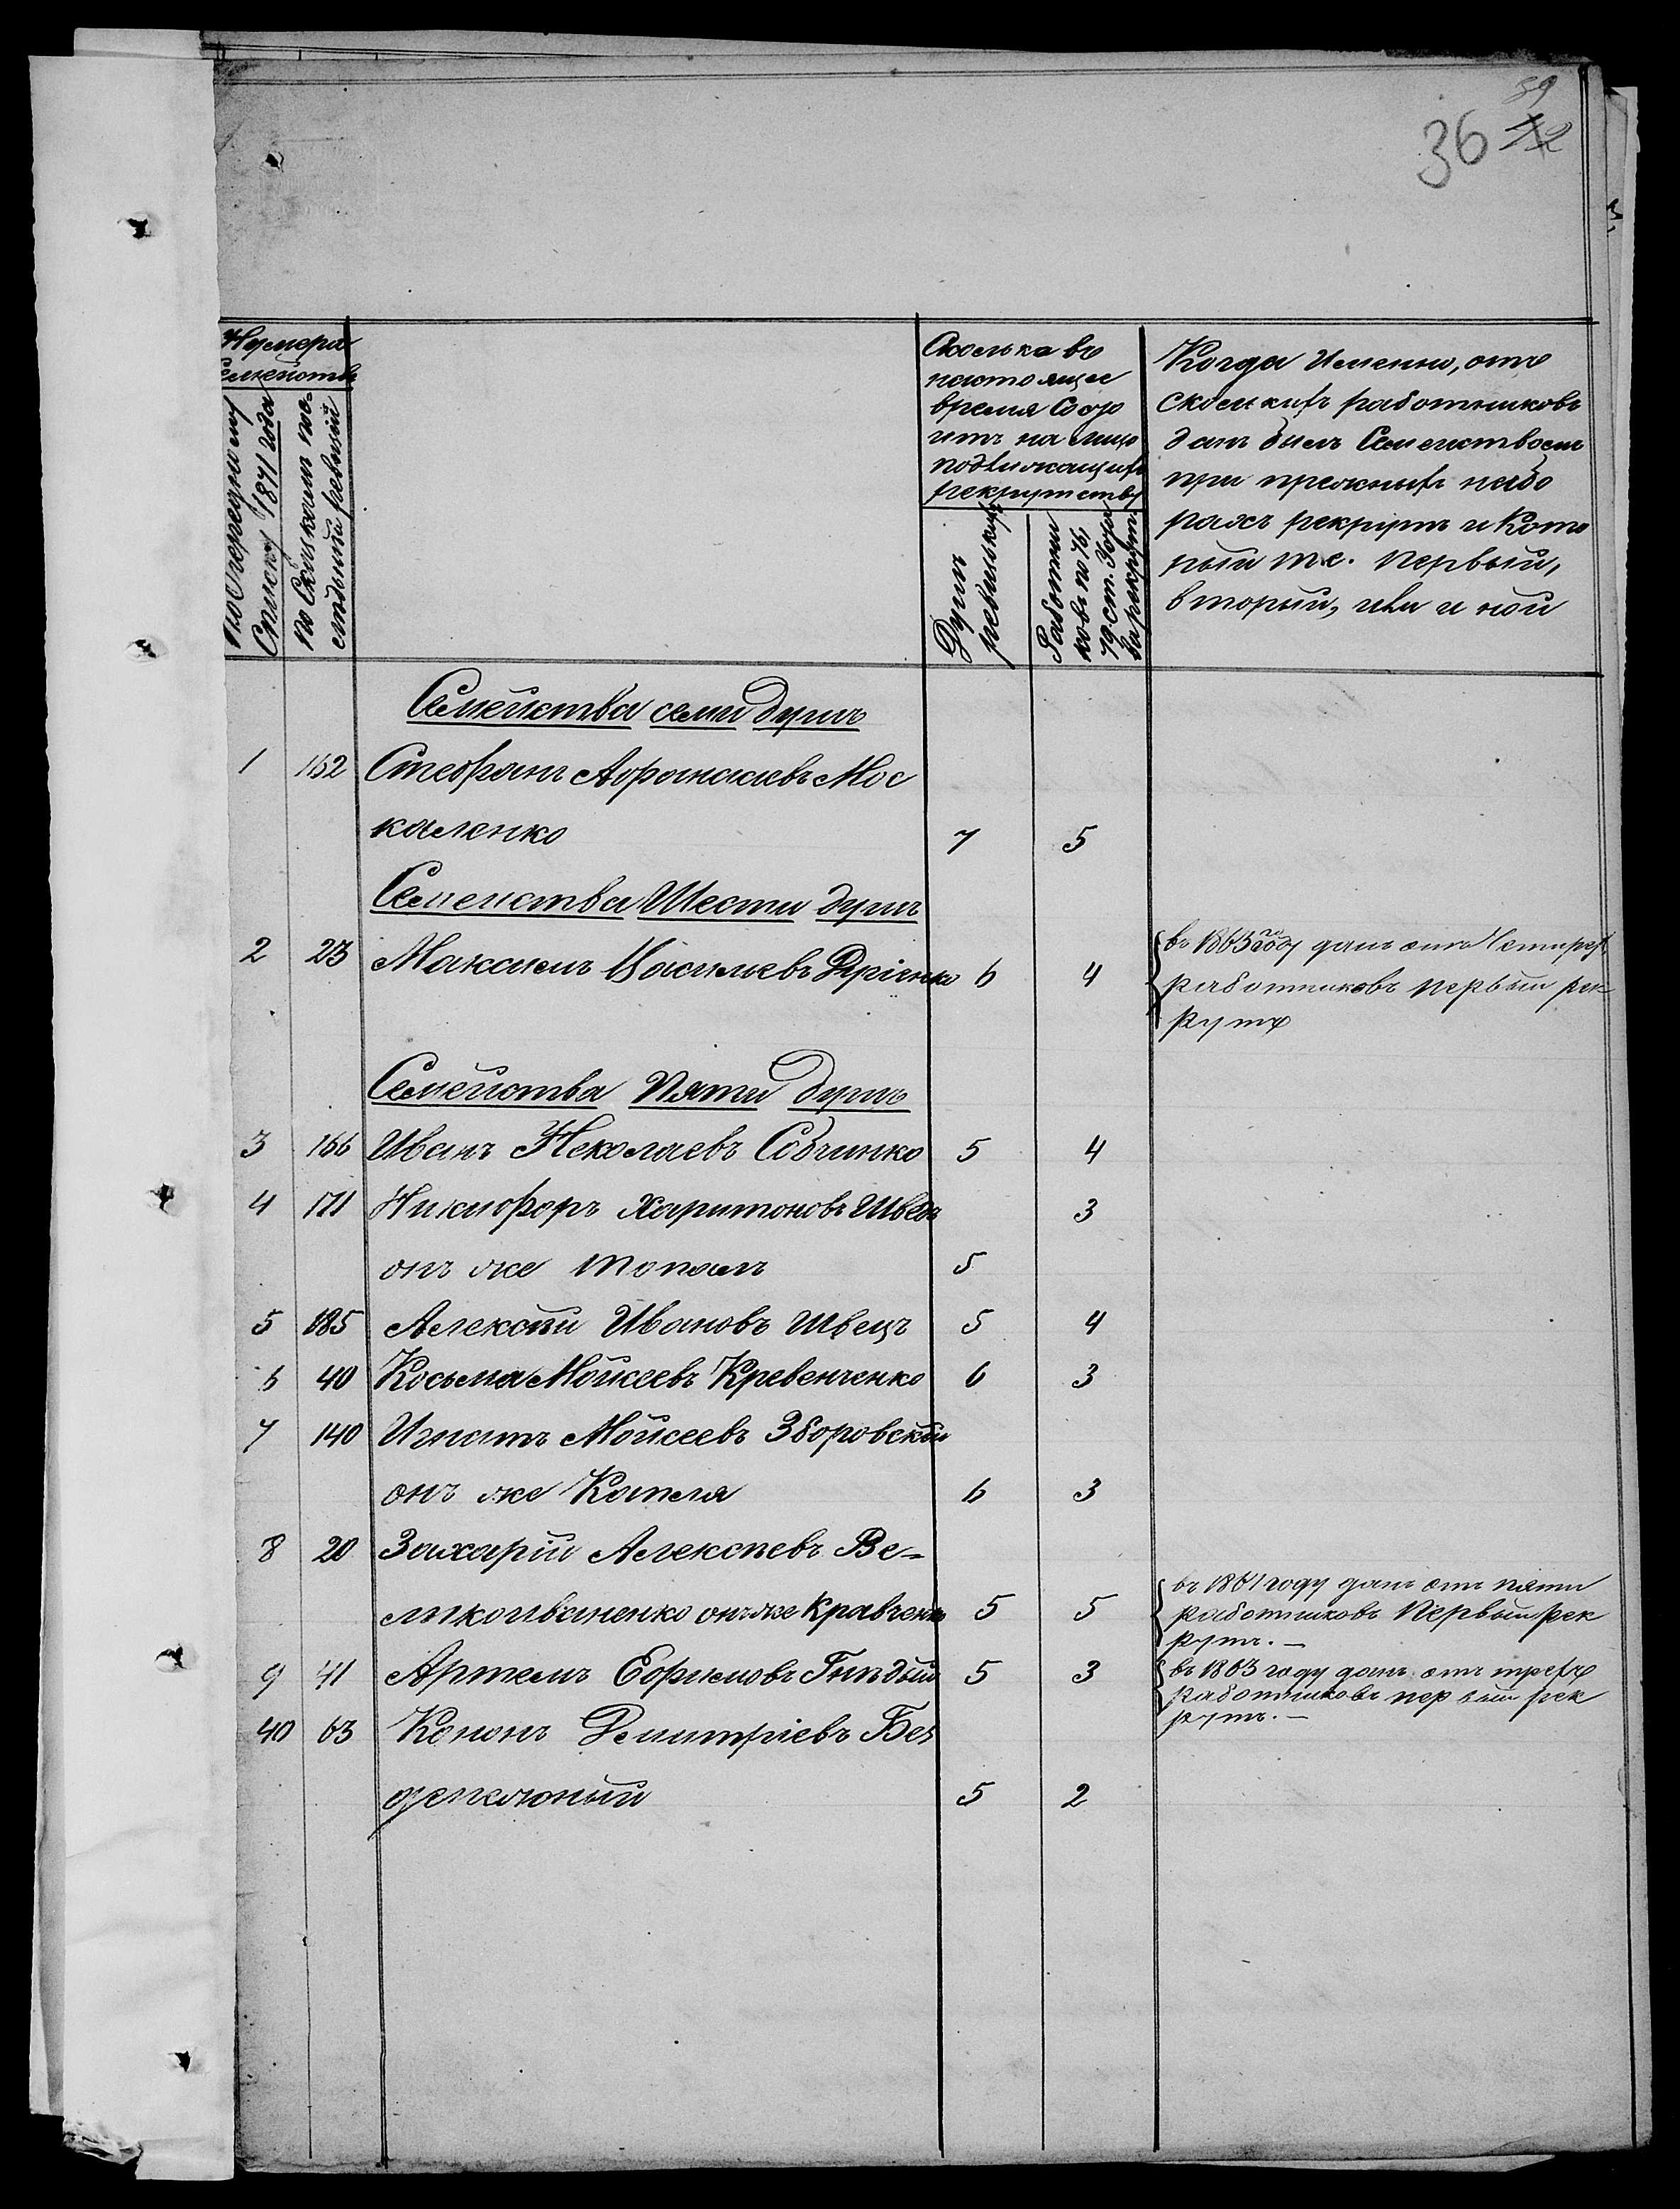 39
36 42
Нумера
Семействъ
по очередному
Списку 1871 года
по Сказкамъ по-
слѣдней ревизіи
Сколько въ
настоящее
время Состо
итъ на лицо
подлежащихъ
рекрутству
Душъ
ревизскихъ
Работни
ковъ по 76,
79 ст. Устава
за рекрут.
Когда Именно, отъ
сколькихъ работниковъ
данъ былъ Семействомъ
при прежнихъ набо
рахъ рекрутъ и Кото
рый т.е. первый,
вторый, или иной
Семейства семи душъ
1 152 Стефанъ Афанасіевъ Мос
каленко 7 5
Семейства Шести душъ
2 23 Максимъ Васильевъ Дріенко 6 4 въ 1863 году данъ отъ Четырехъ
работниковъ первый рек
рутъ
Семейства Пяти душъ
3 166 Иванъ Неколаевъ Собчинко 5 4
4 171 Никифоръ Харитоновъ Швецъ 3
онъ же Топалъ 5
5 185 Алексѣй Ивановъ Швецъ 5 4
6 40 Косьма Мойсеевъ Кревенченко 6 3
7 140 Игнатъ Мойсеевъ Зборовскій
онъ же Капля 6 3
8 20 Захарій Алексѣевъ Ве-
ликоиваненко онъ же Кравченко 5 5 въ 1861 году данъ отъ пяти
работниковъ Первый рек
рутъ. —
9 41 Артемъ Ефимовъ Гнѣдый 5 3 въ 1863 году данъ отъ трехъ
работниковъ первый рек
рутъ. —
40 63 Кононъ Демитріевъ Без
5 2